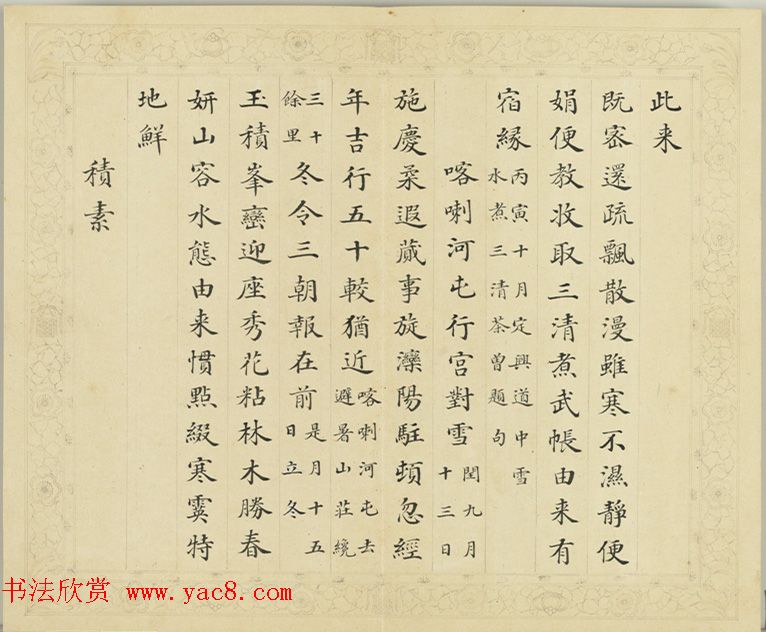 此来
既密還疏飄散漫雖寒不濕靜便
娟便教收取三清煮武帳由来有
宿縁丙寅十月定興道中雪水煮三清茶曾題句
喀喇河屯行宫對雪閏九月十三日
施慶柔遐蕆事旋灤陽駐頓忽經
年吉行五十較猶近喀喇河屯去避暑山莊纔
三十餘里冬令三朝報在前是月十五日立冬
玉積峯巒迎座秀花粘林木勝春
妍山容水態由来慣點綴寒霙特
地鮮
積素
书法欣赏 www.yac8.com